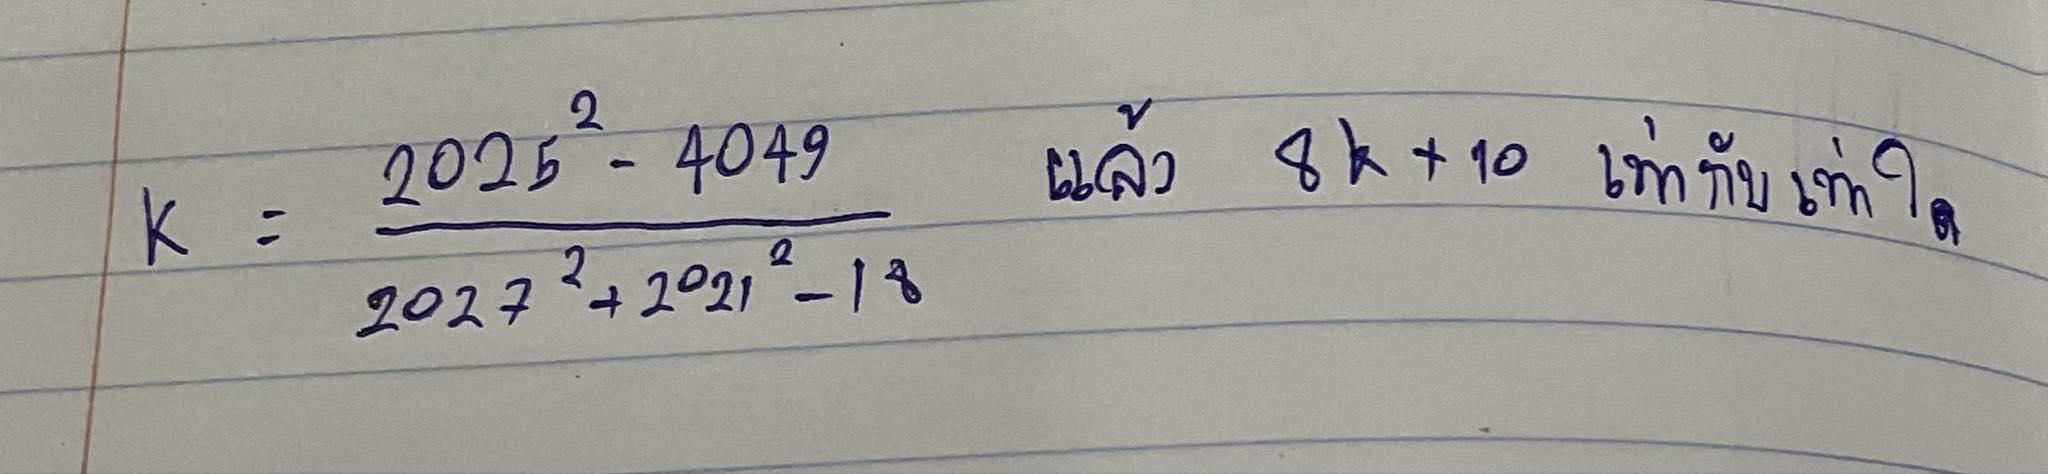 K = \frac{2025^2 - 4049}{2027^2 + 2021^2 - 18} แล้ว 8k + 10 เท่ากับเท่าใด